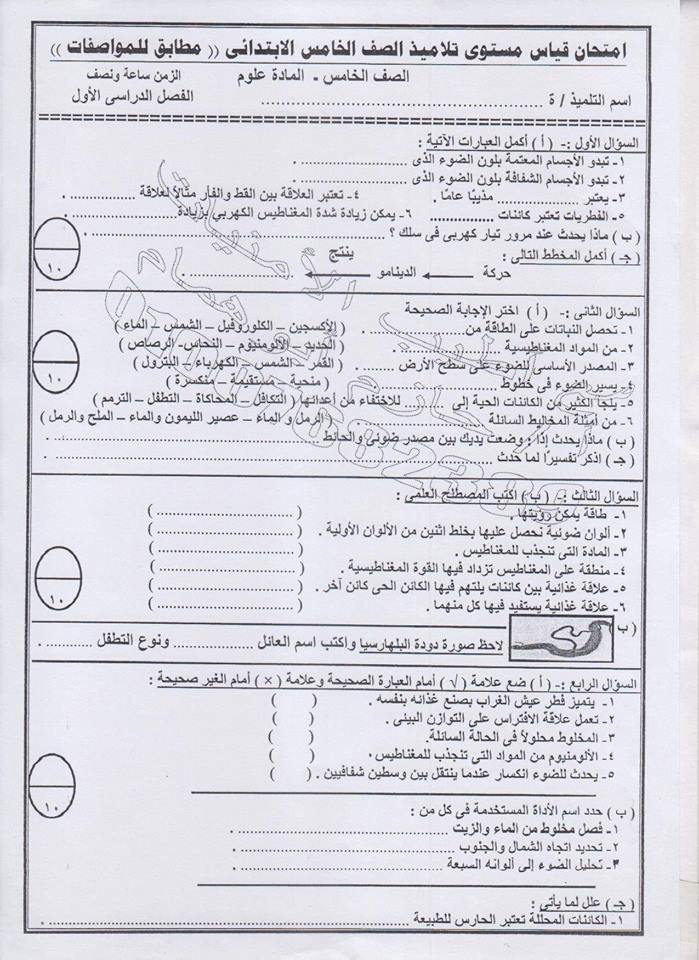 امتحان قياس مستوى تلاميذ الصف الخامس الابتدائى (( مطابق للمواصفات ))
الصف الخامس - المادة علوم
الزمن ساعة ونصف
اسم التلميذ / ة ................................................
الفصل الدراسى الأول
السؤال الأول :- ( أ ) أكمل العبارات الآتية :
١- تبدو الأجسام المعتمة بلون الضوء الذى ..................... .
٢- تبدو الأجسام الشفافة بلون الضوء الذى ..................... .
٣- يعتبر ................. مذيبًا عامًا . ٤- تعتبر العلاقة بين القط والفأر مثالاً لعلاقة ...............
٥- الفطريات تعتبر كائنات ............... ٦- يمكن زيادة شدة المغناطيس الكهربي بزيادة ...............
( ب ) ماذا يحدث عند مرور تيار كهربى فى سلك ؟ .....................
( جـ ) أكمل المخطط التالى :
ينتج
حركة ← الدينامو ← .....................
١٠
السؤال الثانى :- ( أ ) اختر الإجابة الصحيحة
١- تحصل النباتات على الطاقة من..................... . ( الأكسجين – الكلوروفيل – الشمس – الماء )
٢- من المواد المغناطيسية ..................... . ( الحديد – الألومنيوم – النحاس- الرصاص )
٣- المصدر الأساسى للضوء على سطح الأرض ............... . ( القمر – الشمس – الكهرباء – البترول )
٤- يسير الضوء فى خطوط ..................... ( منحنية – مستقيمة – منكسرة )
٥- يلجأ الكثير من الكائنات الحية إلى ......... للاختفاء من أعدائها ( التكافل – المحاكاة – التطفل – الترمم )
٦- من أمثلة المخاليط السائلة ............... . ( الرمل و الماء – عصير الليمون والماء – الملح والرمل )
( ب ) ماذا يحدث إذا : وضعت يديك بين مصدر ضوئى والحائط ..............................
( جـ ) اذكر تفسيرًا لما حدث ..............................
١٠
السؤال الثالث :- ( ب ) اكتب المصطلح العلمى :
١- طاقة يمكن رؤيتها . ( ..................... )
٢- ألوان ضوئية نحصل عليها بخلط اثنين من الألوان الأولية . ( ..................... )
٣- المادة التى تنجذب للمغناطيس . ( ..................... )
٤- منطقة على المغناطيس تزداد فيها القوة المغناطيسية . ( ..................... )
٥- علاقة غذائية بين كائنات يلتهم فيها الكائن الحى كائن آخر . ( ..................... )
٦- علاقة غذائية يستفيد فيها كل منهما . ( ..................... )
١٠
( ب ) لاحظ صورة دودة البلهارسيا واكتب اسم العائل ............... ونوع التطفل ............... .
السؤال الرابع :- ( أ ) ضع علامة ( √ ) أمام العبارة الصحيحة وعلامة ( × ) أمام الغير صحيحة :
١- يتميز فطر عيش الغراب بصنع غذائه بنفسه . ( )
٢- تعمل علاقة الافتراس على التوازن البينى . ( )
٣- المخلوط محلولاً فى الحالة السائلة. ( )
٤- الألومنيوم من المواد التى تنجذب للمغناطيس . ( )
٥- يحدث للضوء انكسار عندما ينتقل بين وسطين شفافيين . ( )
١٠
( ب ) حدد اسم الأداة المستخدمة فى كل من :
١- فصل مخلوط من الماء والزيت .............................. .
٢- تحديد اتجاه الشمال والجنوب .............................. .
٣- تحليل الضوء إلى ألوانه السبعة .............................. .
( جـ ) علل لما يأتى :
١- الكائنات المحللة تعتبر الحارس للطبيعة .............................. .